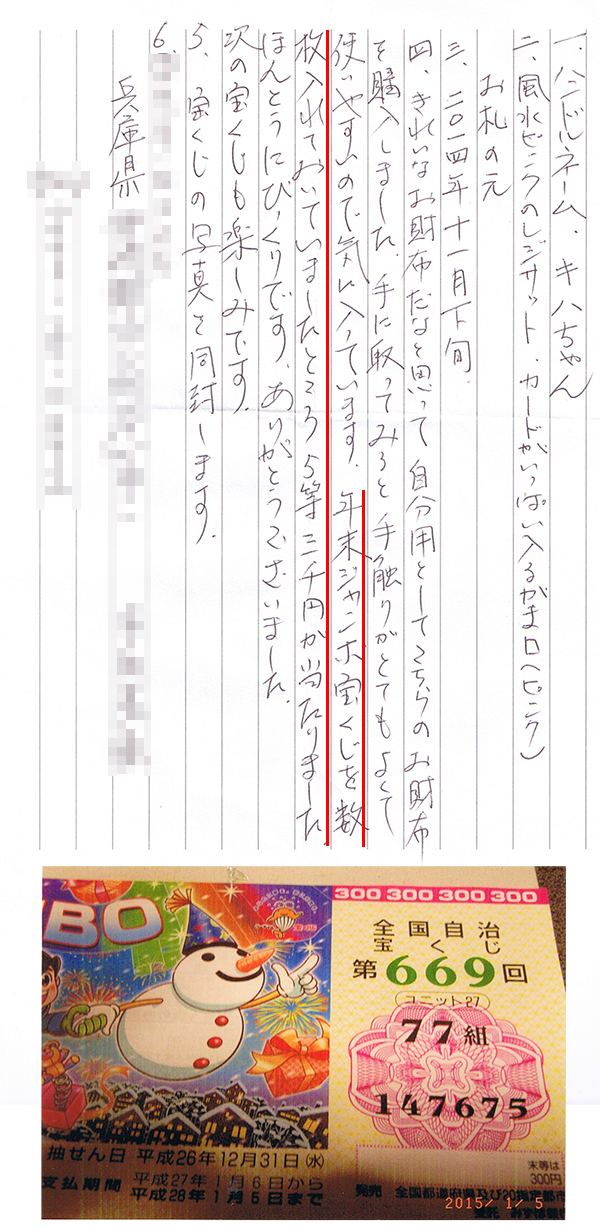 一、ハンドルネーム、キハちゃん
二、風水ピンクのレジサット、カードがいっぱい入るがま口(ピンク)
お札の元
三、二〇一四年十一月下旬、
四、きれいなお財布だなと思って自分用としてこちらのお財布
を購入しました。手に取ってみると手触りがとてもよくて
使いやすいので気に入っています。年末ジャンボ宝くじを数
枚入れておいていましたところ5等三千円が当たりました
ほんとうにびっくりです、ありがとうございました。
次の宝くじも楽しみです。
5、宝くじの写真を同封します。
6、
兵庫県
300 300 300 300
BO
全国自治
宝くじ
第669回
ユニット27
77組
147675
抽せん日 平成26年12月31日(水)
支払期間 平成27年1月6日から
平成28年1月5日まで
末等は
300円
発売 全国都道府県及び20指定都市
2015/1/5